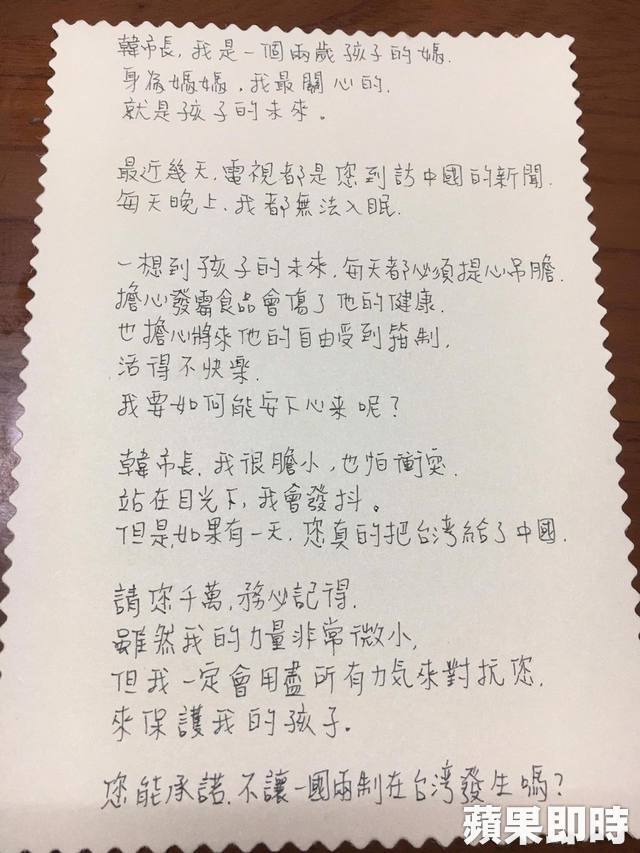 韓市長，我是一個兩歲孩子的媽.
身為媽媽，我最關心的.
就是孩子的未來。
最近幾天.電視都是您到訪中國的新聞.
每天晚上.我都無法入眠.
一想到孩子的未來.每天都必須提心吊膽.
擔心發霉食品會傷了他的健康.
也擔心將來他的自由受到箝制.
活得不快樂.
我要如何能安下心来呢？
韓市長.我很膽小，也怕衝突.
站在目光下，我會發抖。
但是.如果有一天.您真的把台湾給了中國.
請您千萬.務必記得.
雖然我的力量非常微小.
但我一定會用盡所有力氣來對抗您.
來保護我的孩子。
您能承諾.不讓一國兩制在台湾發生嗎？
蘋果即時